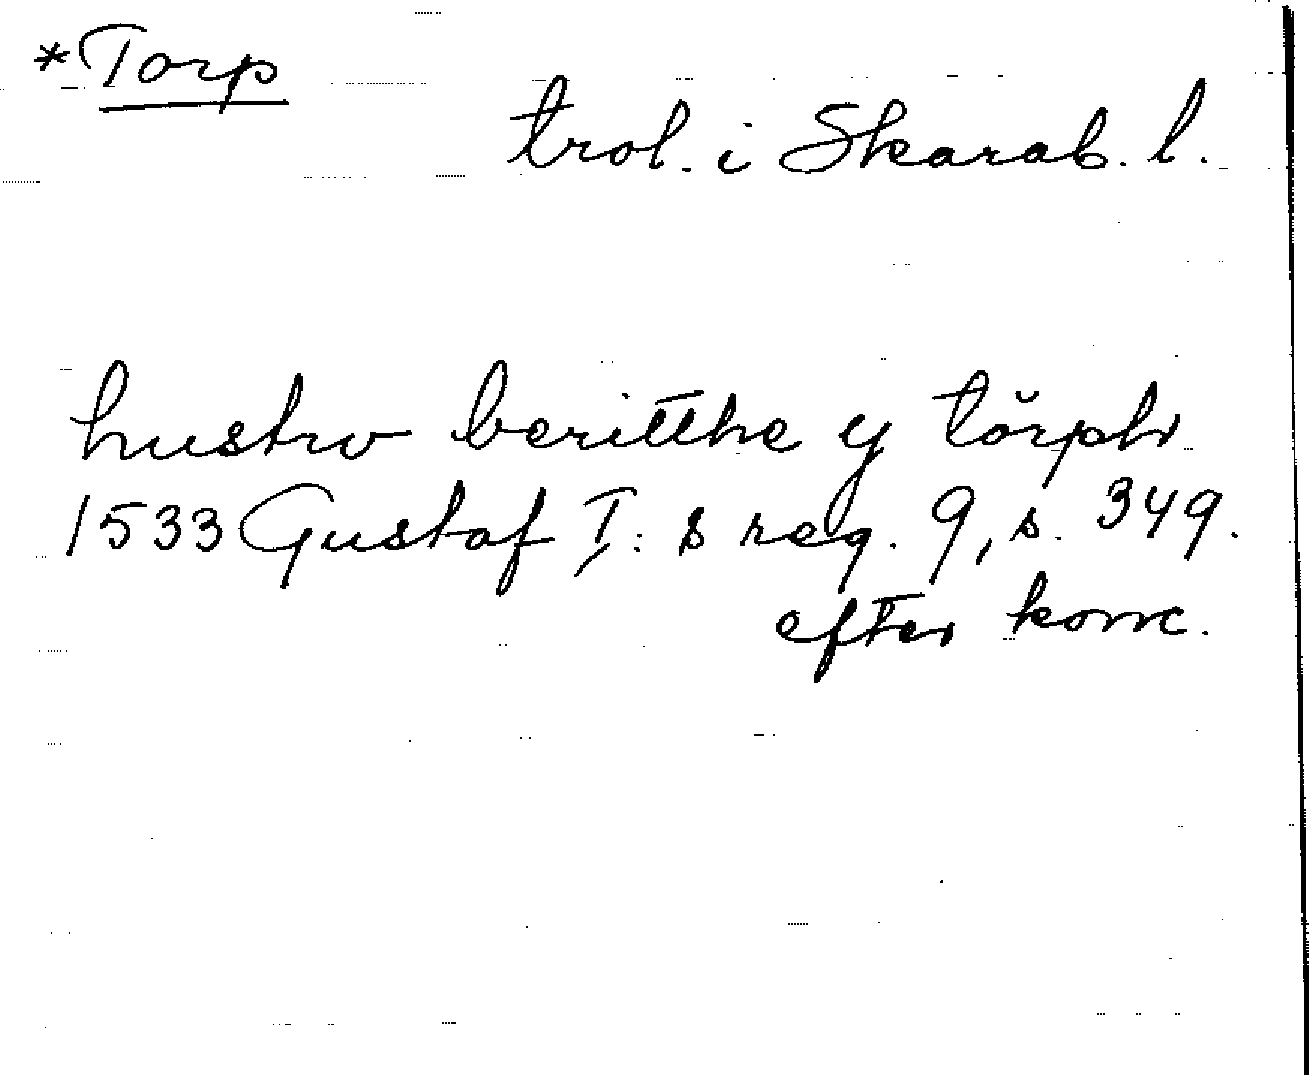 *Torp
trol. i Skarab. l.
hustrv beritthe y tŏrph
1533 Gustaf I:s reg. 9, s. 349.
efter konc.